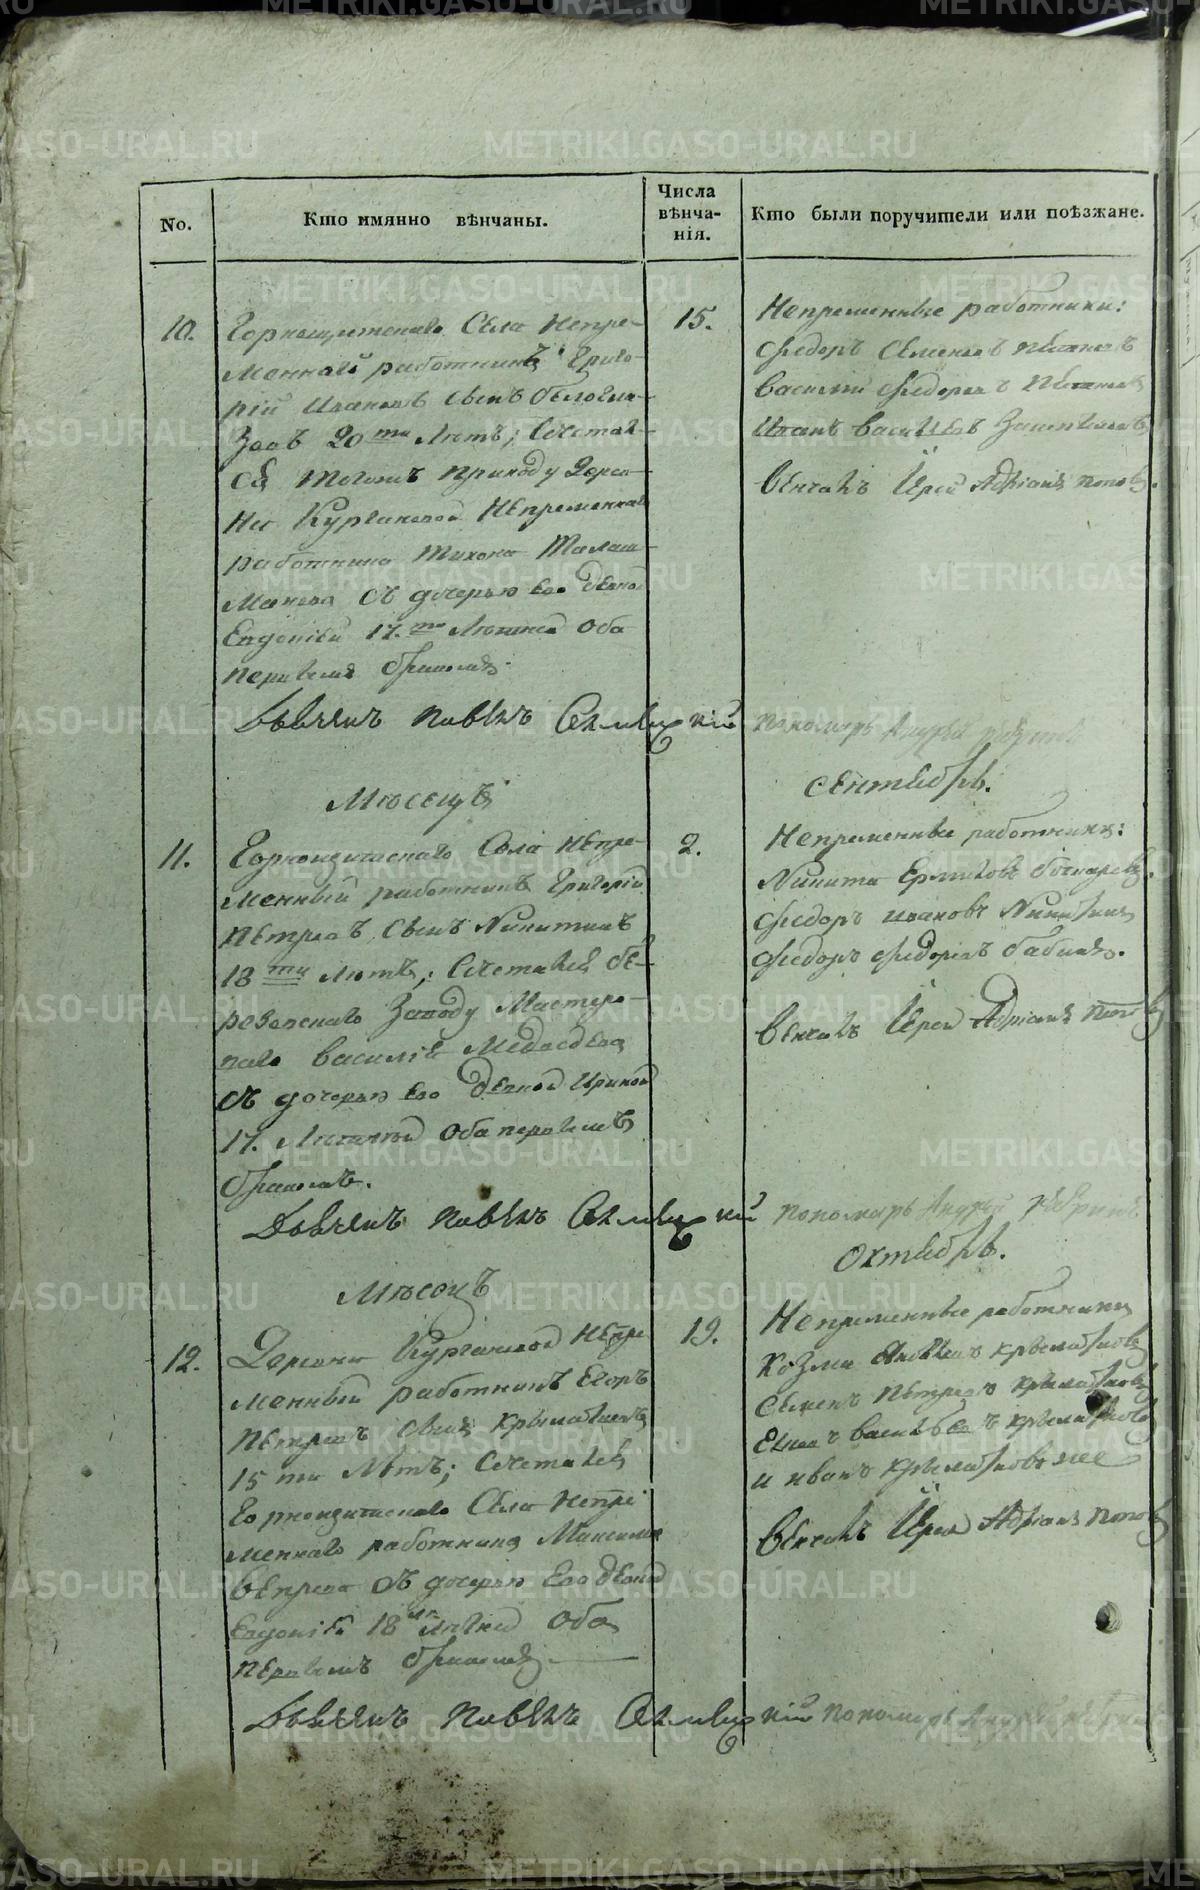 No.
Кто имянно вѣнчаны.
Числа
вѣнча-
нія.
Кто были поручители или поѣзжане.
10.
Горнощитскаго Села Непре-
меннаго работникъ Григо-
рій Ивановъ сынъ Белогла-
зовъ 20ти Лѣтъ; Сочетал-
ся тогожъ приходу Дерев-
ни Кургановой Непременнаго
работника Тихона Талаш-
манова съ дочерью Его девкой
Евдокіей 17.ти Лѣтней Оба
первымъ бракомъ.
15.
Непременные работники:
Федоръ Семеновъ
Василій Федоровъ
Иванъ Васильевъ
Венчалъ Іерей Адріанъ Поповъ.
Дьячекъ Павелъ
пономарь Андрей
Мѣсецъ
Сентябрь.
11.
Горнощитскаго Села Непре-
менный работникъ Григорій
Петровъ Сынъ Никитинъ
18ти Лѣтъ; Сочетался бе-
резовскаго Заводу Мастеро-
ваго Василія Медведева
съ дочерью Его девкой Ириной
17. Летней Оба первымъ
бракомъ.
2.
Непременные работники:
Никита Ермиловъ
Федоръ Ивановъ Никитинъ
Федоръ Федоровъ Бабинъ.
Венчалъ Іерей Адріанъ Поповъ
Дьячекъ Павелъ
пономарь Андрей
Мѣсецъ
Октябрь.
12.
Деревни Кургановой Непре
менный работникъ Егоръ
Петровъ Сынъ Крылатковъ
15 ти Лѣтъ; Сочетался
Горнощитскаго Села Непре
меннаго работника Максима
Вепрева съ дочерью Его девкой
Евдокіей 18ти Лѣтней Оба
первымъ бракомъ
19.
Непременные работники
Козма Яковлевъ Крылатковъ
Семенъ Петровъ Крылатковъ
Васильевъ Крылатковъ
и Иванъ Крылатковъ же
Венчалъ Іерей Адріанъ Поповъ
Дьячекъ Павелъ
пономарь Андрей
METRIKI.GASO-URAL.RU